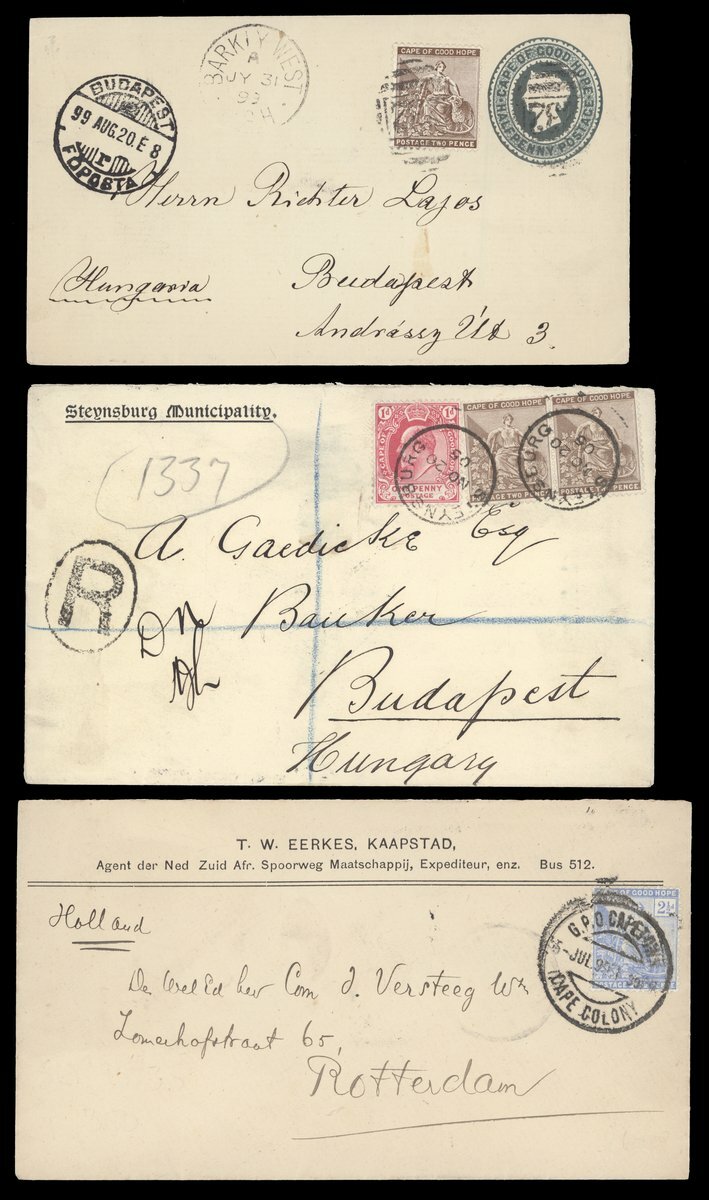 BARKLY WEST
A
JY 31
99
CAPE OF GOOD HOPE
POSTAGE TWO PENCE
CAPE OF GOOD HOPE
HALF PENNY POSTAGE
BUDAPEST
99 AUG. 20. É 8
FŐPOSTA
Herrn Richter Lajos
Hungaria
Budapest
Andrássy Út 3.
Steynsburg Municipality.
1337
1d 1d
CAPE OF GOOD HOPE
CAPE OF GOOD HOPE
PENNY
POSTAGE
POSTAGE TWO PENCE
STEYNSBURG
NO 20
05
STEYNSBURG
NO 20
05
A. Gaedicke Esq
R
Banker
Budapest
Hungary
T. W. EERKES, KAAPSTAD,
Agent der Ned Zuid Afr. Spoorweg Maatschappij, Expediteur, enz. Bus 512.
OF GOOD HOPE
2½
G.P.O CAPETOWN
JUL 99
CAPE COLONY
Holland
De Wel Ed heer Com J. Versteeg Wz
Zomerhofstraat 65,
Rotterdam